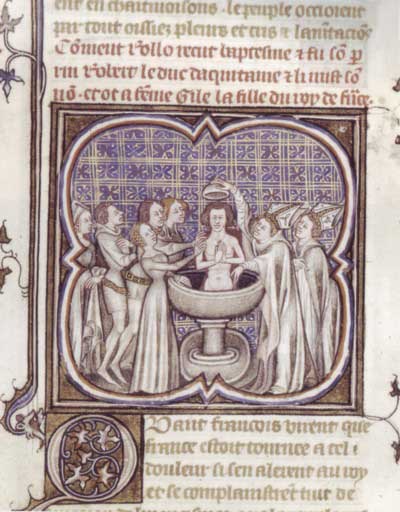 ent en chaitiuoisons. le peuple occioient
par tout oissiez pleurs et cris & lamtacions
Coment Rollo recut baptesme & fu son p
rin Robert le duc daquitaine & li mist son
non. et ot a feme Gile la fille du roy de fice.
Quant francois virent que
france estoit tournee a tel
douleur si sen alerent au roy
et se complainstrent tuit de